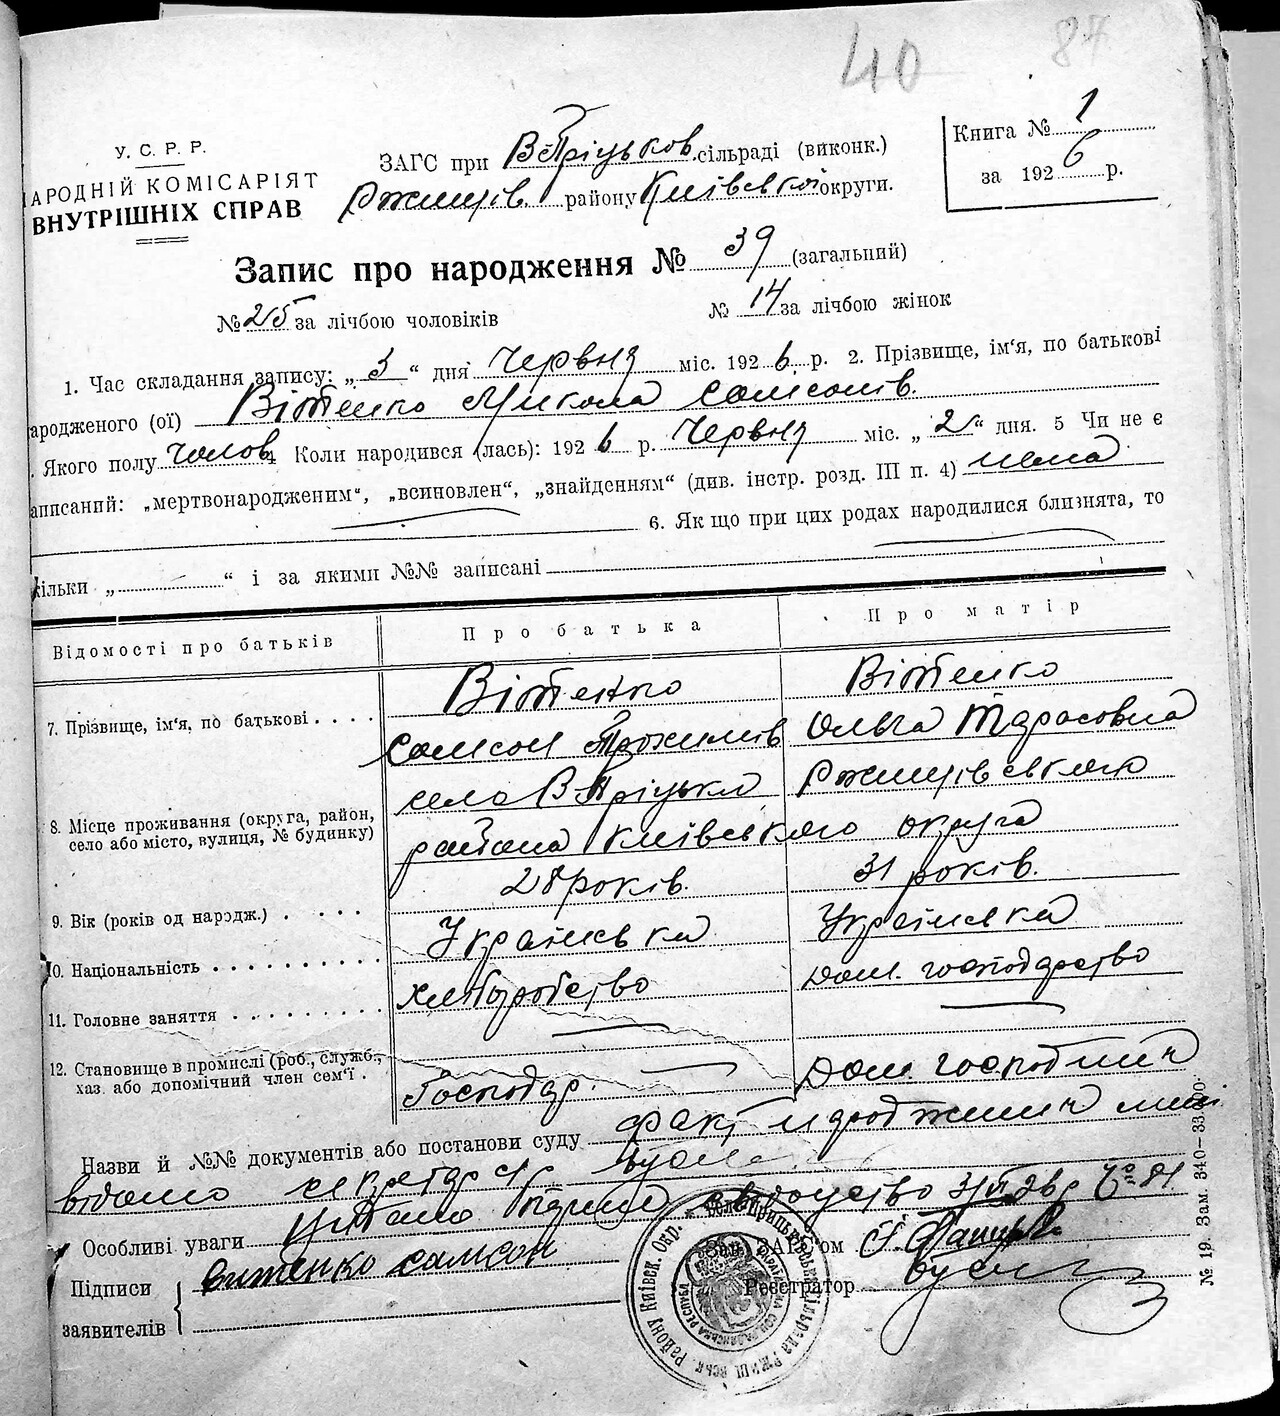 40 87
У. С. Р. Р.
НАРОДНІЙ КОМІСАРІЯТ
ВНУТРІШНІХ СПРАВ
ЗАГС при В Пріцьков. сільраді (виконк.)
Ржищів. району Київської округи.
Книга № 1
за 1926 р.
Запис про народження № 39 (загальний)
№ 25 за лічбою чоловіків № 14 за лічбою жінок
1. Час складання запису: „3“ дня Червня міс. 1926 р. 2. Прізвище, ім‘я, по батькові
ародженого (ої) Вітенко Микола Самсонів.
. Якого полу чолов 4 Коли народився (лась): 1926 р. Червня міс. „2“ дня. 5 Чи не є
аписаний: „мертвонародженим“, „всиновлен“, „знайденням“ (див. інстр. розд. III п. 4) нема
6. Як що при цих родах народилися близнята, то
кільки „ “ і за якими №№ записані
Відомості про батьків Про батька Про матір
7. Прізвище, ім‘я, по батькові . . . . Вітенко Вітенко
Самсон Трохимів Ольга Тарасовна
8. Місце проживання (округа, район, село або місто, вулиця, № будинку) села В Пріцьки Ржищівського
района Київського округа
9. Вік (років од народж.) . . . . 28 років. 31 років.
10. Національність . . . . . . . . . . Українська Українська
11. Головне заняття . . . . . . . . . хліборобство дом. господарство
12. Становище в промислі (роб., служб., хаз. або допомічний член сем‘ї . Господар. Дом. господиня
Назви й №№ документів або постанови суду факт народження мені
відомо секретар
Особливі уваги
Підписи
заявителів
Витенко Самсон
Зав. ЗАГС‘ом
Реєстратор
№ 19. Зам. 340—33.000.